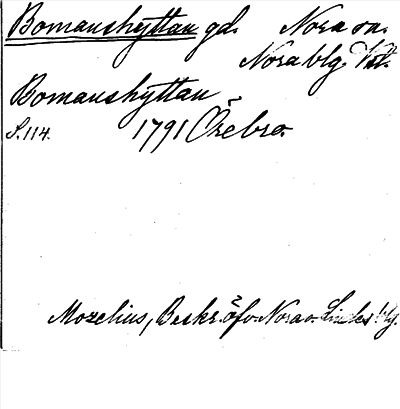 Bomanshyttan gd. Nora sn.
Nora blg. Vstl.
Bomanshyttan
S. 114. 1791 Örebro.
Mozelius, Beskr. öfv. Nora o. Lindes blg.